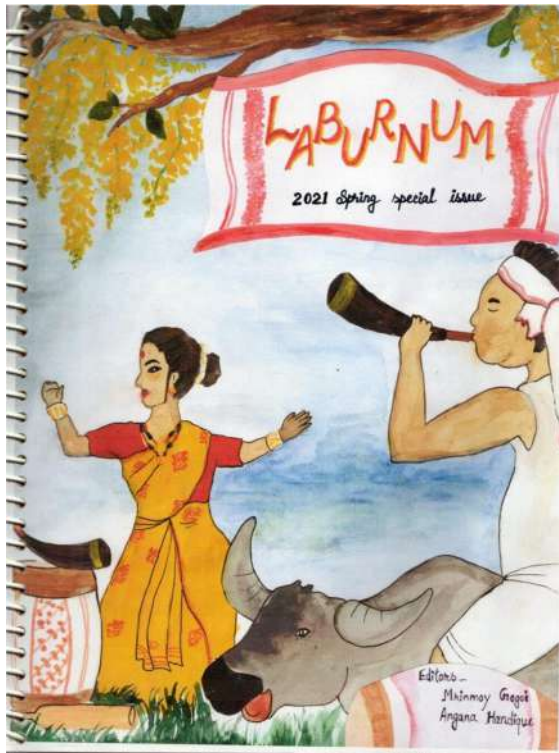 LABURNUM
2021 Spring special issue
Editors -
Mrinmoy Gogoi
Angana Handique